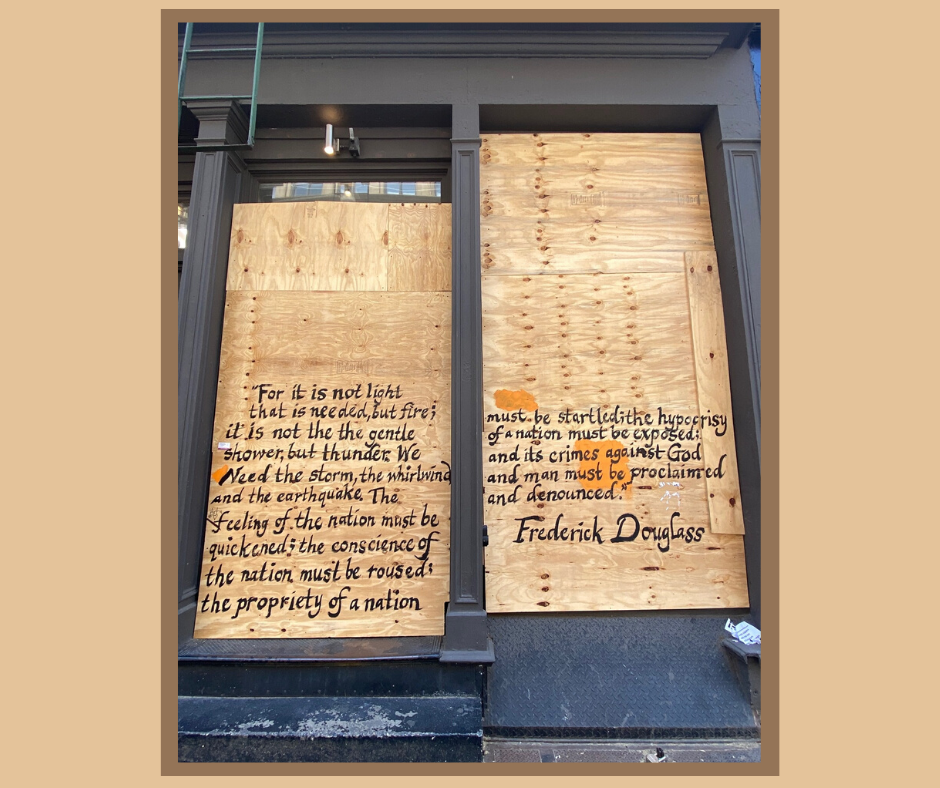 "For it is not light
that is needed, but fire;
it is not the the gentle
shower, but thunder. We
Need the storm, the whirlwind
and the earthquake. The
feeling of the nation must be
quickened; the conscience of
the nation must be roused;
the propriety of a nation
must be startled; the hypocrisy
of a nation must be exposed;
and its crimes against God
and man must be proclaimed
and denounced."
Frederick Douglass